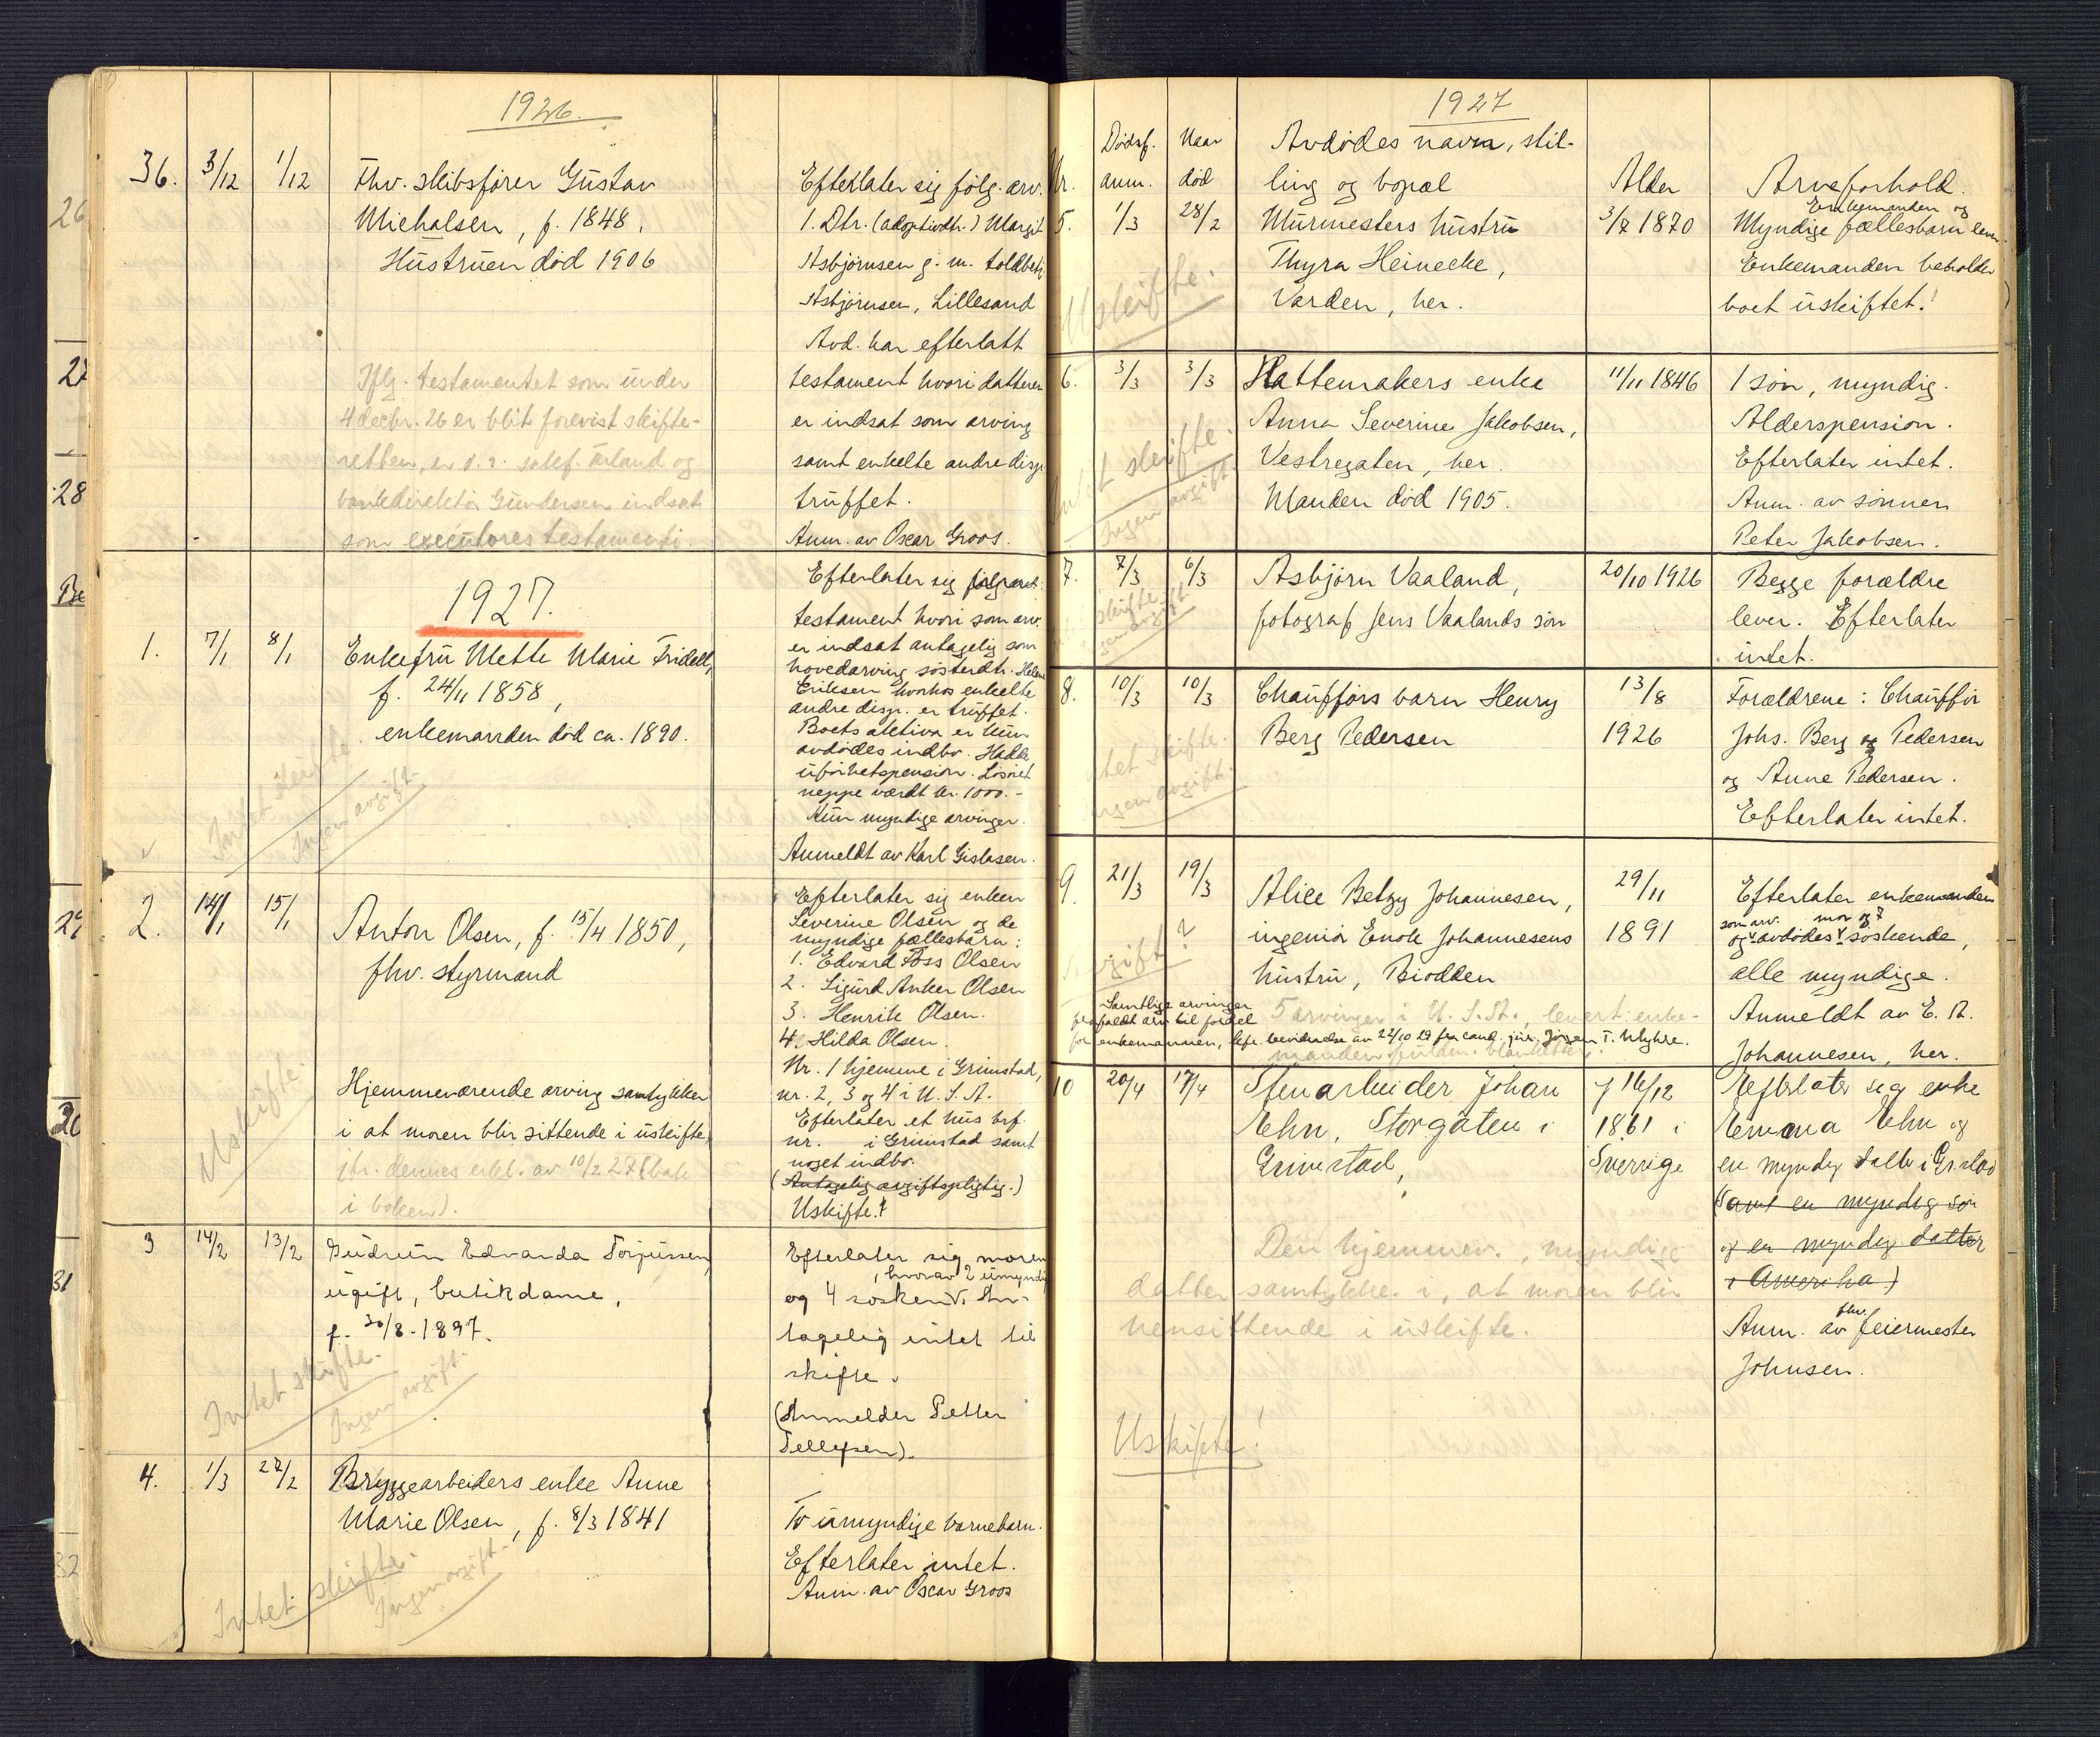 1926.
36.
3/12
1/12
Fhv. skibsfører Gustav
Michalsen, f. 1848,
Hustruen død 1906
Efterlater sig følg. arv.
1. Dtr. (adoptivdtr.) Margit
Asbjörnsen g. m. toldbetj.
Asbjörnsen, Lillesand
Avd. har efterlatt
testament hvori datteren
er indsat som arving
samt enkelte andre disp.
truffet.
Anm. av Oscar Groos.
Iflg. testamentet som under
4 decbr. 26 er blit forevist skifte-
retten, er o.r. sakf. Ørland og
bankdirektør Gundersen indsat
som executores testamenti.
1927.
1.
7/1
8/1
Enkefru Mette Marie Fridell,
f. 24/11 1858,
enkemanden død ca. 1890.
Intet skifte
Ingen avgift.
Efterlater sig
testament hvori som arv.
er indsat antagelig som
hovedarving søsterdtr. Helene
Eriksen hvorhos enkelte
andre disp. er truffet.
Boets aktiva er kun
avdødes indbo. Hadde
uførhetspension. Løsøret
neppe værdt kr. 1000.-
Kun myndige arvinger.
Anmeldt av Karl Gislasen.
2.
14/1
15/1
Anton Olsen, f. 15/4 1850,
fhv. styrmand
Efterlater sig enken
Severine Olsen og de
myndige fællesbarn:
1. Edvard Foss Olsen
2. Sigurd Anker Olsen
3. Henrik Olsen.
4. Hilda Olsen.
Nr. 1 hjemme i Grimstad,
nr. 2, 3 og 4 i U. S. A.
Efterlater et hus brf.
nr. i Grimstad samt
noget indbo.
(Antagelig avgiftspligtig.)
Uskifte!
Hjemmeværende arving samtykker
i at moren blir sittende i uskifte,
jfr. dennes erkl. av 10/2 27 (bak
i boken).
Uskifte.
3
14/2
13/2
Gudrun Edvarda Torjussen,
ugift, butikdame,
f. 30/8-1897.
Intet skifte.
Ingen avgift.
Efterlater sig moren
, hvorav 2 umyndige
og 4 søsken. An-
tagelig intet til
skifte.
(Anmelder Petter
Tellefsen).
4.
1/3
27/2
Bryggearbeiders enke Anne
Marie Olsen, f. 8/3 1841
Intet skifte.
Ingen avgift.
To umyndige barnebarn.
Efterlater intet.
Anm. av Oscar Groos
1927
Nr.
Dødsf.
anm.
Naar
død
Avdødes navn, stil-
ling og bopæl
Alder
Arveforhold.
5.
1/3
28/2
Murmesters hustru
Thyra Heinecke,
Varden, her.
3/7 1870
Enkemanden og
Myndige fællesbarn lever.
Enkemanden beholder
boet uskiftet!
Uskifte.
6.
3/3
3/3
Hattemakers enke
Anna Severine Jakobsen,
Vestregaten, her.
Manden død 1905.
11/11 1846
1 søn, myndig.
Alderspension.
Efterlater intet.
Anm. av sønnen
Peter Jakobsen.
Intet skifte.
Ingen avgift
7.
7/3
6/3
Asbjörn Vaaland,
fotograf Jens Vaalands søn
20/10 1926
Begge forældre
lever. Efterlater
intet.
skifte
8.
10/3
10/3
Chaufførs barn Henry
Berg Pedersen
13/8
1926
Forældrene: Chauffør
Johs. Berg og Pedersen
og Anne Pedersen.
Efterlater intet.
Intet skifte.
Ingen avgift.
9.
21/3
19/3
Alice Betzy Johannesen,
ingeniør Enok Johannesens
hustru, Biodden
29/11
1891
Efterlater enkemanden
som arv. mor og 7
og avdødes søskende,
alle myndige.
Anmeldt av E. A.
Johannesen, her.
Avgift?
5 arvinger i U. S. A., levert enke-
manden
Samtlige arvinger
frafaldt arv til fordel
for enkemannen, bevidnelse av 22/10 29 fra cand. jur. Jörgen T. Myhre.
10
20/4
17/4
Stenarbeider Johan
Ehn, Storgaten i
Grimstad,
f 16/12
1861 i
Sverrige
Efterlater sig enke
Emma Ehn og
en myndig datter i Gr.stad
(samt en myndig søn
og en myndig datter
i Amerika)
fhv.
Anm. av feiermester
Johnsen.
Den hjemmev., myndige
datter samtykke i, at moren blir
hensittende i uskifte.
Uskifte!